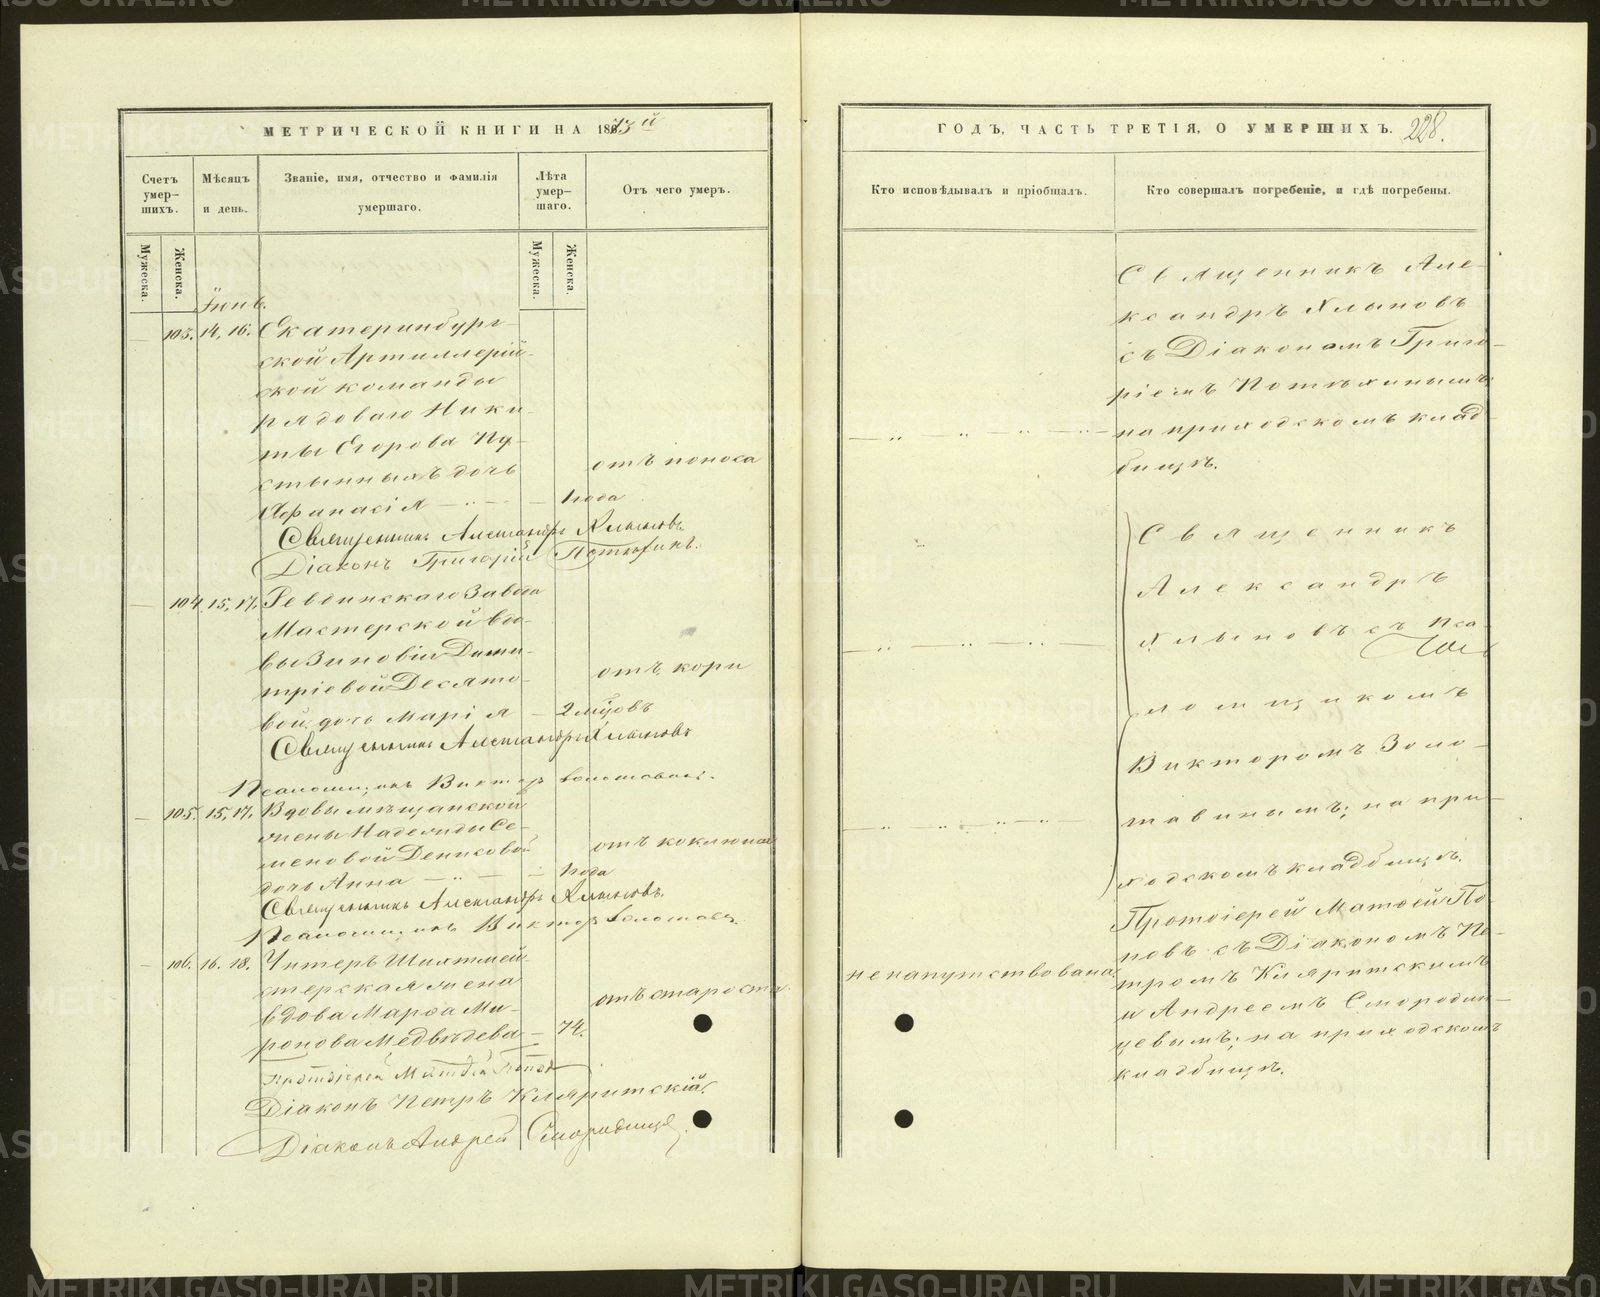 МЕТРИЧЕСКОЙ КНИГИ НА 1873й
Счетъ умер-шихъ.
Мужеска.
Женска.
Мѣсяцъ и день.
Званіе, имя, отчество и фамилія умершаго.
Лѣта умер-шаго.
Мужеска.
Женска.
Отъ чего умеръ.
Іюнь.
103. 14. 16. Екатеринбург-
ской Артиллерій-
ской команды
рядоваго Ники-
ты Егорова Пу-
стынныхъ дочь
отъ поноса
Афанасія — 1 года
Священникъ Александръ Хлыновъ.
Діаконъ Григорій Потѣхинъ.
104. 15. 17. Ревдинскаго Завода
Мастерской вдо-
вы Зиновіи Дими-
тріевой Десято-
отъ кори
вой дочь Марія — 2 мѣсцовъ
Священникъ Александръ Хлыновъ
Псаломщикъ Викторъ
105. 15. 17. Вдовы мѣщанской
жены Надежды Се-
меновой Денисовой
отъ коклюша
дочь Анна — 1 года
Священникъ Александръ Хлыновъ.
Псаломщикъ Викторъ
106. 16. 18. Унтеръ Шихтмей-
стерская жена
вдова Марѳа Ми-
отъ старости
ронова Медвѣдева — 74.
Протоіерей Матѳей Поповъ
Діаконъ Петръ Кляритскій.
Діаконъ Андрей Смородинце
ГОДЪ, ЧАСТЬ ТРЕТІЯ, О УМЕРШИХЪ. 228.
Кто исповѣдывалъ и пріобщалъ.
Кто совершалъ погребеніе, и гдѣ погребены.
Священникъ Але-
ксандръ Хлыновъ
съ Діакономъ Григо-
ріемъ Потѣхинымъ
на приходскомъ клад-
бищѣ.
Священникъ
Александръ
Хлыновъ съ Пса-
ломщикомъ
Викторомъ Золо-
тавинымъ; на при-
ходскомъ кладбищѣ.
Протоіерей Матѳей По-
повъ съ Діакономъ Пе-
ненапутствована.
тромъ Кляритскимъ
и Андреемъ Смородин-
цевымъ; на приходскомъ
кладбищѣ.
METRIKI.GASO-URAL.RU